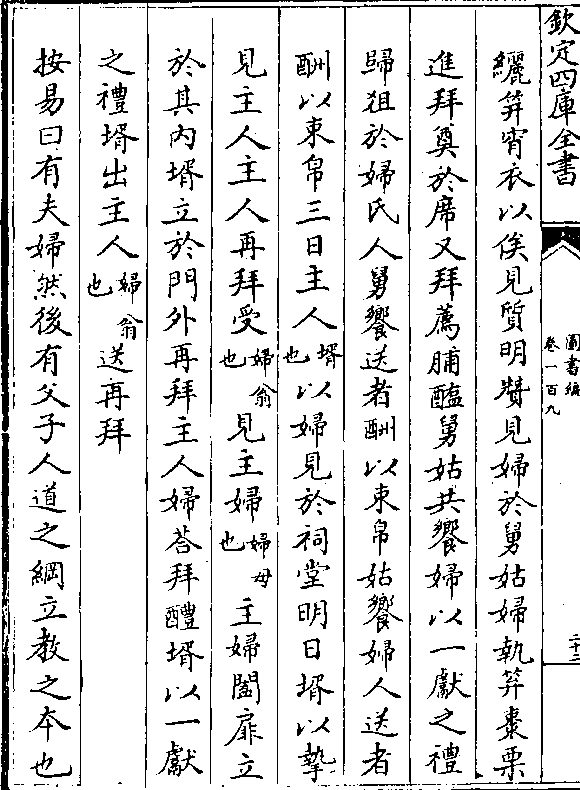 欽定四庫全書
圖書編
卷一百九
二十三
纚笄宵衣以俟見質明贊見婦於舅姑婦執笲棗栗
進拜奠於席又拜薦脯醢舅姑共饗婦以一獻之禮
歸俎於婦氏人舅饗送者酬以束帛姑饗婦人送者
酬以束帛三日主人壻也以婦見於祠堂明日壻以摯
見主人主人再拜受婦翁也見主婦婦母也主婦闔扉立
於其内壻立於門外再拜主人婦荅拜醴壻以一獻
之禮壻出主人婦翁也送再拜
按易曰有夫婦然後有父子人道之綱立教之本也